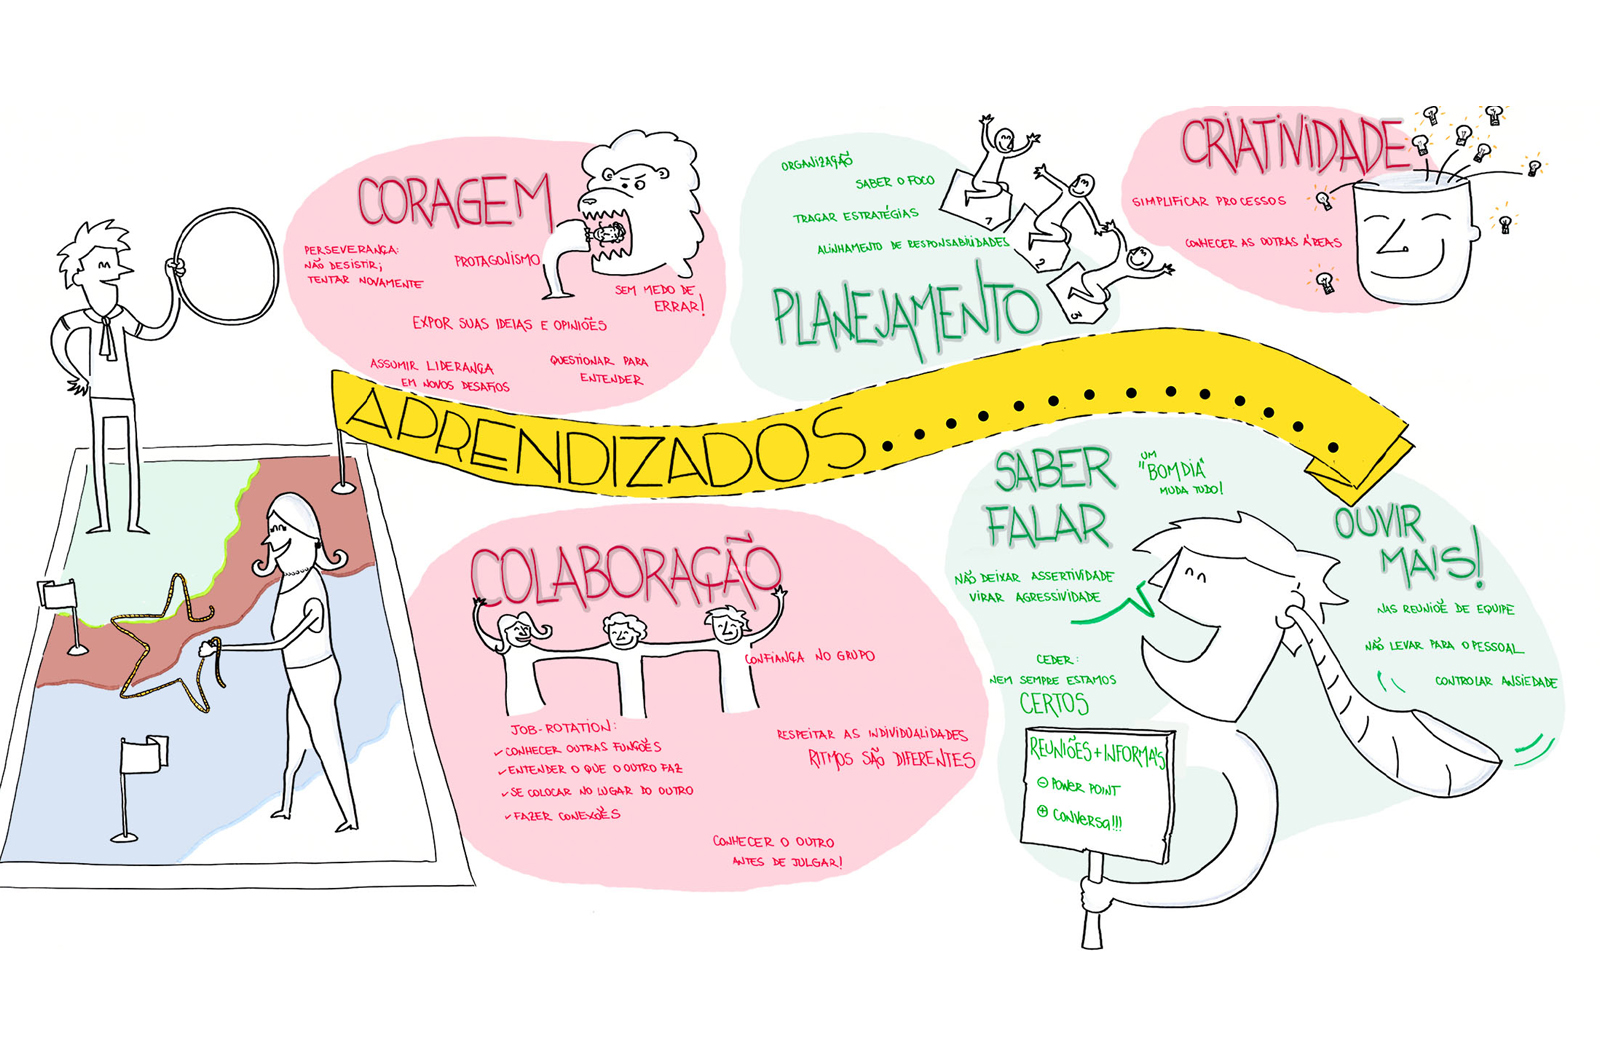 CORAGEM
PERSEVERANÇA:
NÃO DESISTIR;
TENTAR NOVAMENTE
PROTAGONISMO
SEM MEDO DE
ERRAR!
EXPOR SUAS IDEIAS E OPINIÕES
ASSUMIR LIDERANÇA
EM NOVOS DESAFIOS
QUESTIONAR PARA
ENTENDER
ORGANIZAÇÃO
SABER O FOCO
TRAÇAR ESTRATÉGIAS
ALINHAMENTO DE RESPONSABILIDADES
PLANEJAMENTO
1
2
3
CRIATIVIDADE
SIMPLIFICAR PROCESSOS
CONHECER AS OUTRAS ÁREAS
APRENDIZADOS..............
COLABORAÇÃO
CONFIANÇA NO GRUPO
JOB-ROTATION:
✓CONHECER OUTRAS FUNÇÕES
✓ENTENDER O QUE O OUTRO FAZ
✓SE COLOCAR NO LUGAR DO OUTRO
✓FAZER CONEXÕES
RESPEITAR AS INDIVIDUALIDADES
RITMOS SÃO DIFERENTES
CONHECER O OUTRO
ANTES DE JULGAR!
SABER
FALAR
UM
"BOM DIA"
MUDA TUDO!
NÃO DEIXAR ASSERTIVIDADE
VIRAR AGRESSIVIDADE
CEDER:
NEM SEMPRE ESTAMOS
CERTOS
REUNIÕES + INFORMAIS
⊖ POWER POINT
⊕ CONVERSA!!!
OUVIR
MAIS!
NAS REUNIÕE DE EQUIPE
NÃO LEVAR PARA O PESSOAL
CONTROLAR ANSIEDADE